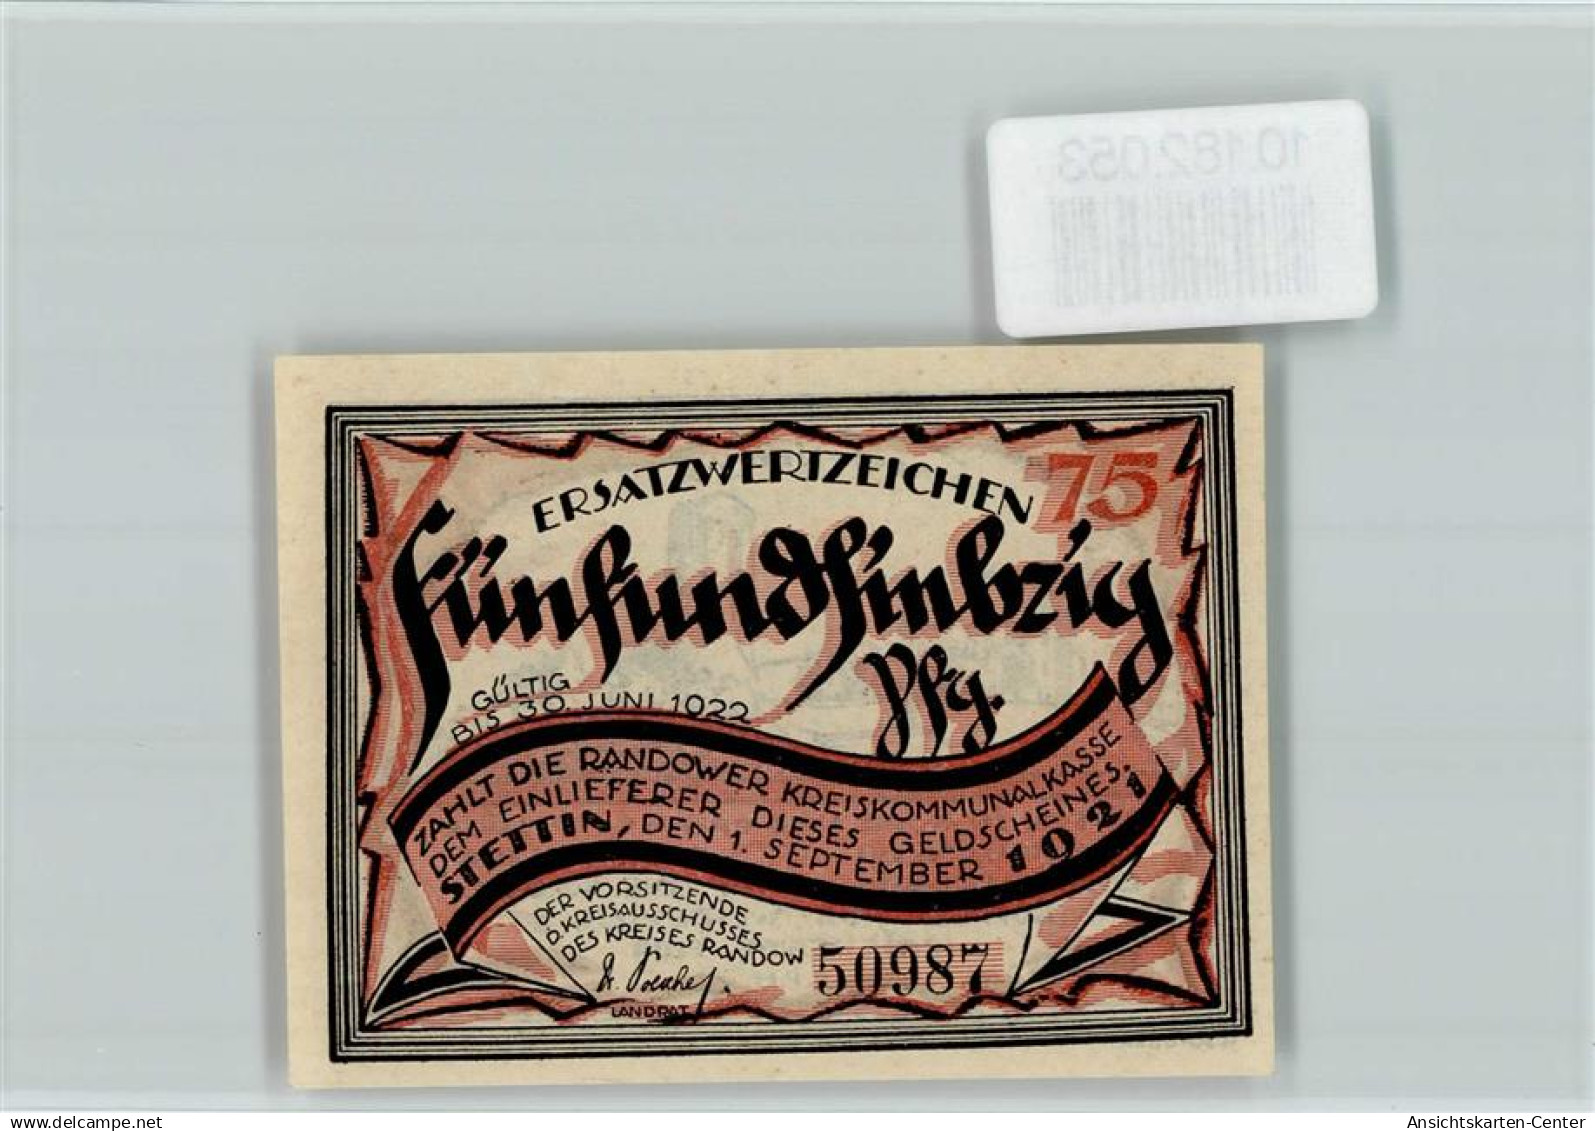 10.182.053
ERSATZWERTZEICHEN 75
Fünfundsiebzig
Pfg.
GÜLTIG
BIS 30. JUNI 1922
ZAHLT DIE RANDOWER KREISKOMMUNALKASSE
DEM EINLIEFERER DIESES GELDSCHEINES.
STETTIN, DEN 1. SEPTEMBER 1921
DER VORSITZENDE
D. KREISAUSSCHUSSES
DES KREISES RANDOW
50987
LANDRAT
delcampe.net
Ansichtskarten-Center